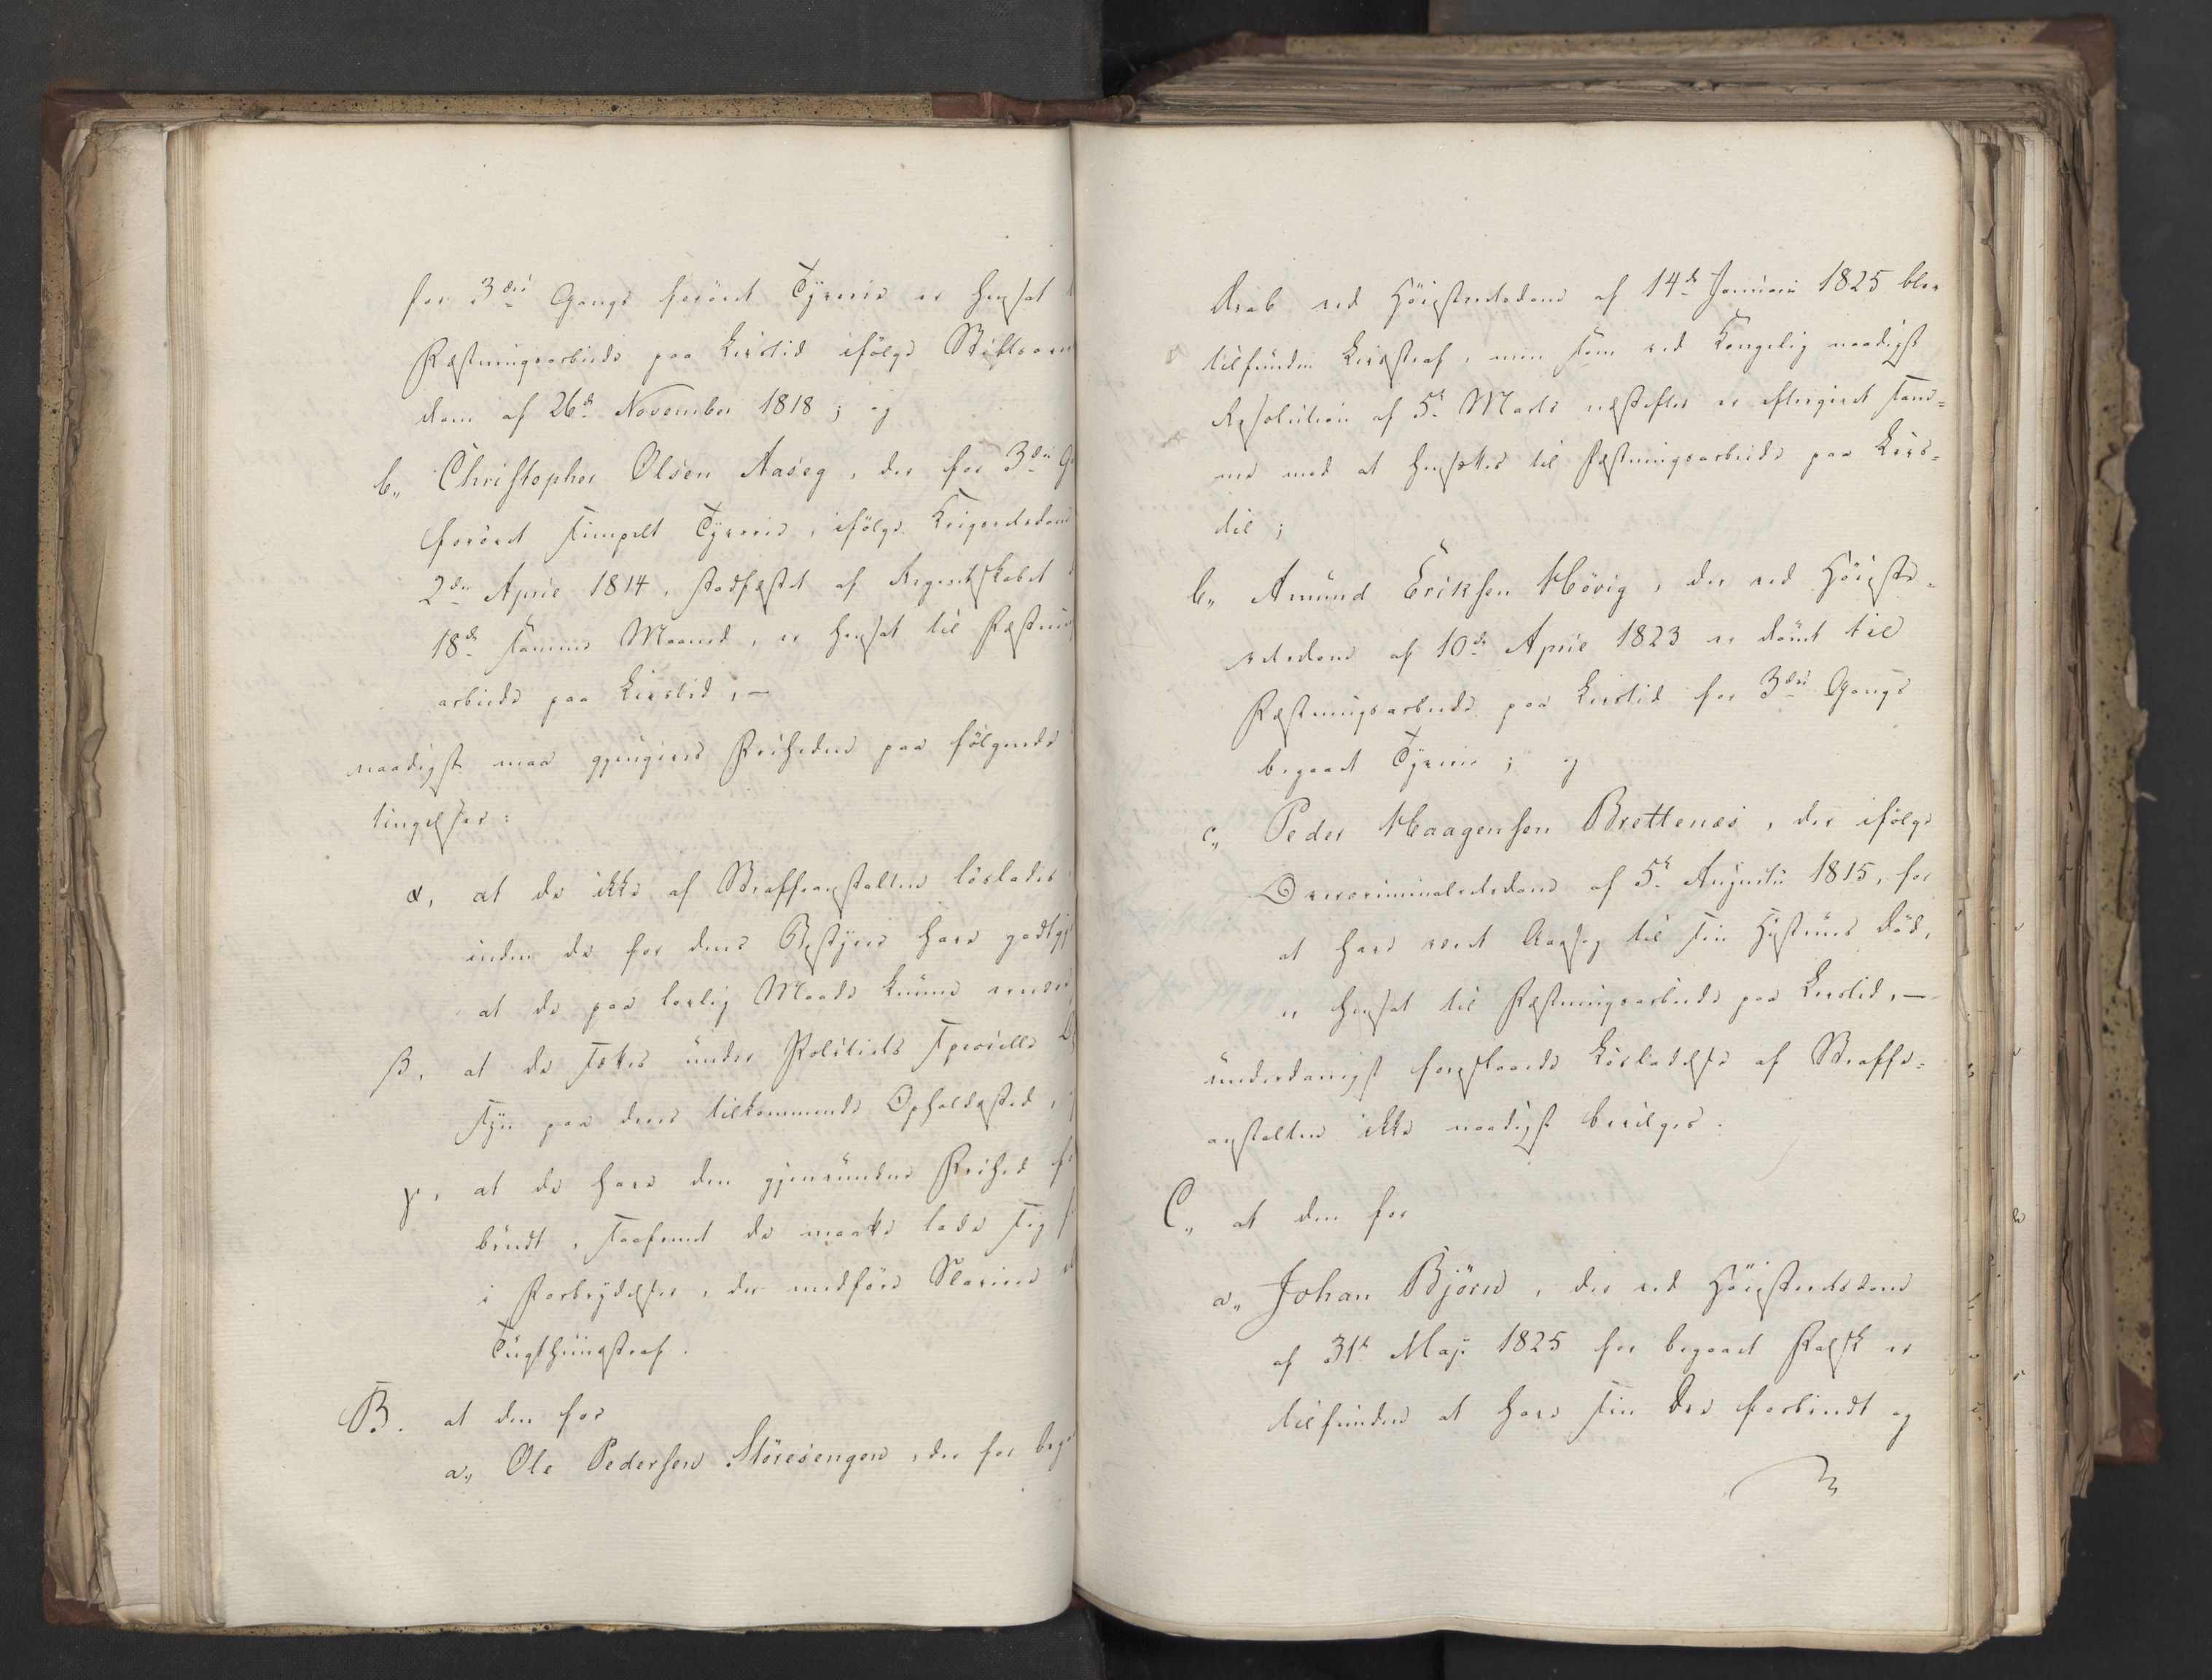 for 3die Gangs forövet Tyverie er hensat
Fæstningsarbeide paa Livstid ifölge Stiftsover
dom af 26de November 1818; og
b,, Christopher Olsen Aaseg, der for 3die G
forövet simpelt Tyverie, ifölge Krigsretsdom
2den April 1814, stadfæstet af Regentskabet
18de samme Maaned, er hensat til Fæstnings
arbeide paa Livstid, —
naadigst maa gjengives Friheden paa fölgende
tingelser:
α, at de ikke af Straffeanstalten löslades
inden de for dens Bestyrer have godtgj
at de paa lovlig Maade kunne ernære
β, at de sættes under Politiets specielle
syn paa deres tilkommende Opholdssted,
γ, at de have den gjenvundne Frihed
brudt, saafremt de maatte lade sig
i Forbrydelser, der medföre Slaverie
Tugthuusstraf.
B. at den for
a,, Ole Pedersen Störesengen, der for beg
drab ved Höiesteretsdom af 14de Januari 1825 blev
tilfunden Livsstraf, men som ved Kongelig naadigst
Resolution af 5te Marts næstefter er eftergivet sam=
me mod at hensættes til Fæstningsarbeide paa Livs=
tid;
b,, Amund Eriksen Hövig, der ved Höieste=
retsdom af 10de April 1823 er dömt til
Fæstningsarbeide paa Livstid for 3die Gangs
begaaet Tyverie; og
c,, Peder Haagensen Brettenes, der ifölge
Overcriminalretsdom af 5te Augusti 1815, for
at have været Aarsag til sin Hustrues Död,
er hensat til Fæstningsarbeide paa Livstid, —
underdanigst foreslaaede Lösladelse af Straffe=
anstalten ikke naadigst bevilges.
C,, at den for
a,, Johan Björn, der ved Höiesteretsdom
af 31te Maji 1825 for begaaet Falsk er
tilfunden at have sin Ære forbrudt og